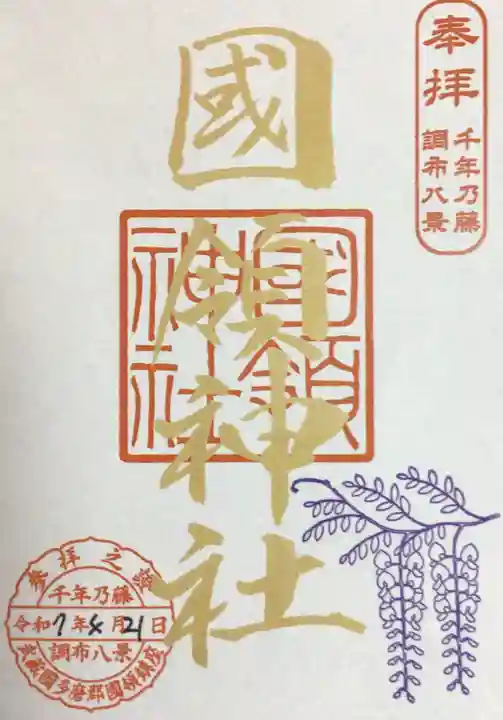 奉拝
千年乃藤
調布八景
國領神社
國領
神社
奉拝之證
千年乃藤
令和7年4月21日
調布八景
武蔵國多磨郡國領鎮座